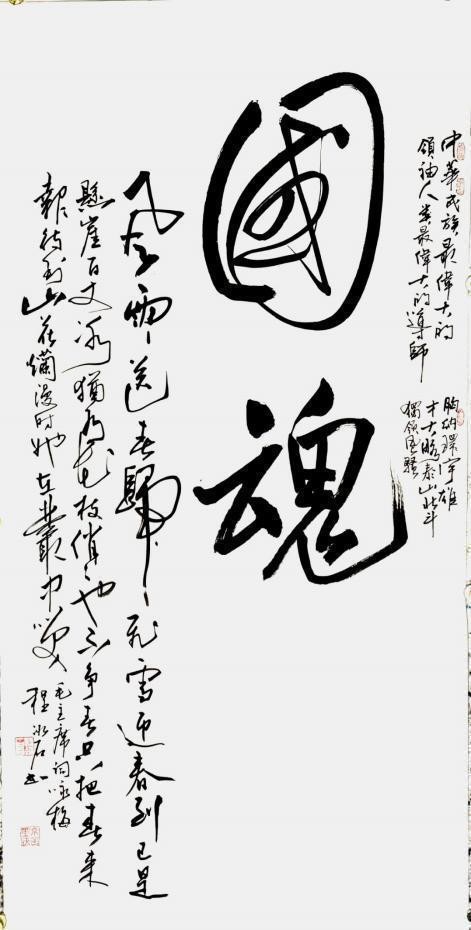 中華民族最偉大的
領袖人类最偉大的導師
胸納環宇雄
才大略泰山北斗
獨領風騷
國魂
風雨送春歸飛雪迎春到已是
懸崖百丈冰猶有花枝俏俏也不争春只把春来
報待到山花爛漫时她在叢中笑
毛主席词咏梅
程冰石书